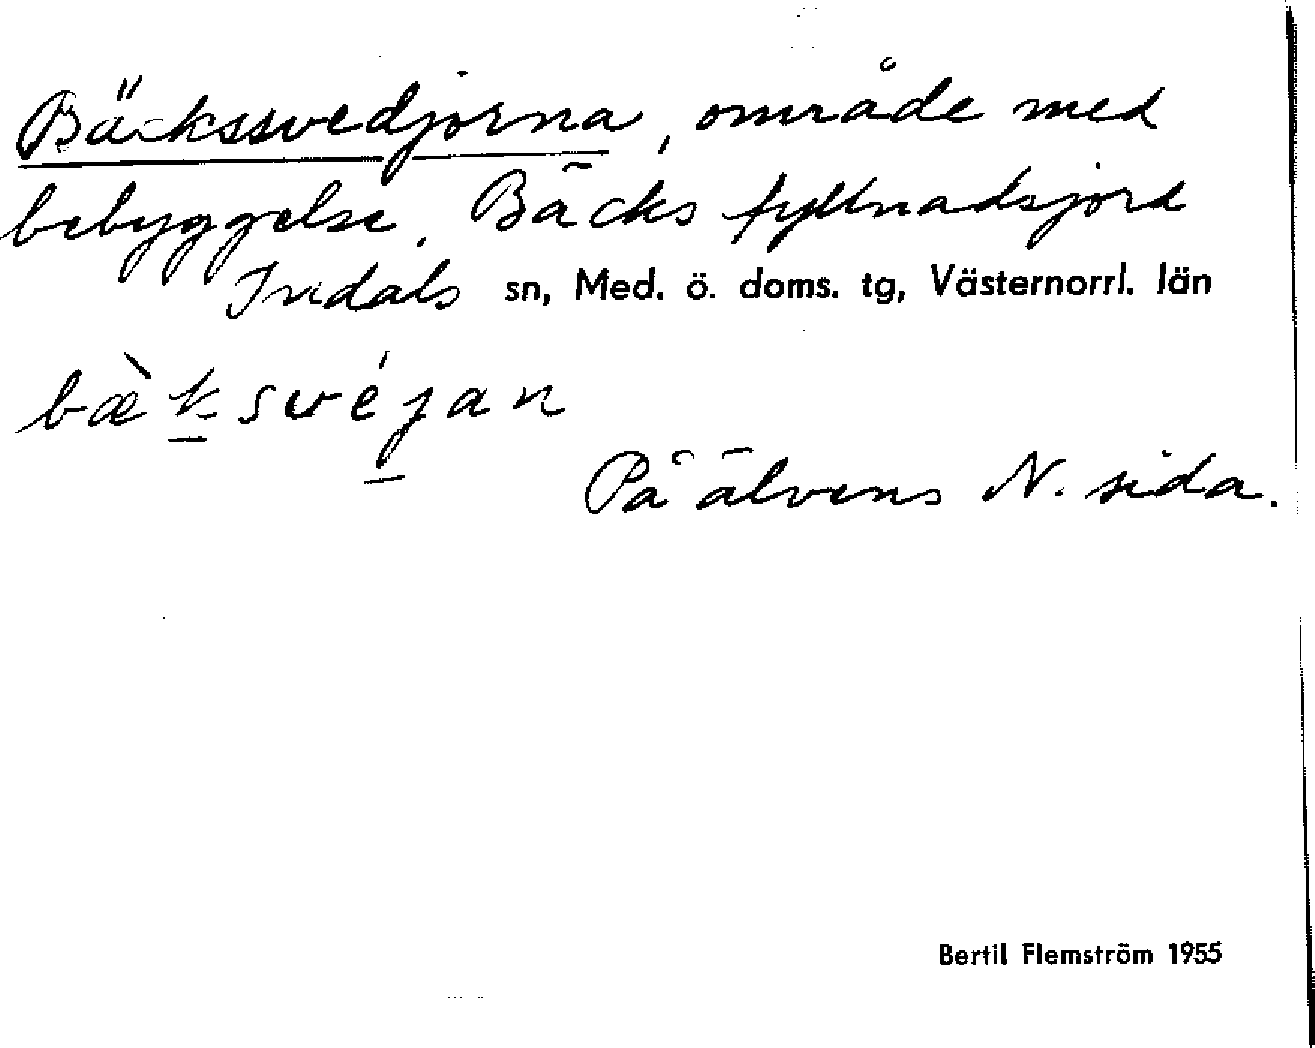 Bäckssvedjorna, område med
bebyggelse. Bäcks fyllnadsjord
Indals sn, Med. ö. doms. tg, Västernorrl. län
bæ̀k̲swéj̲an
På älvens N. sida.
Bertil Flemström 1955